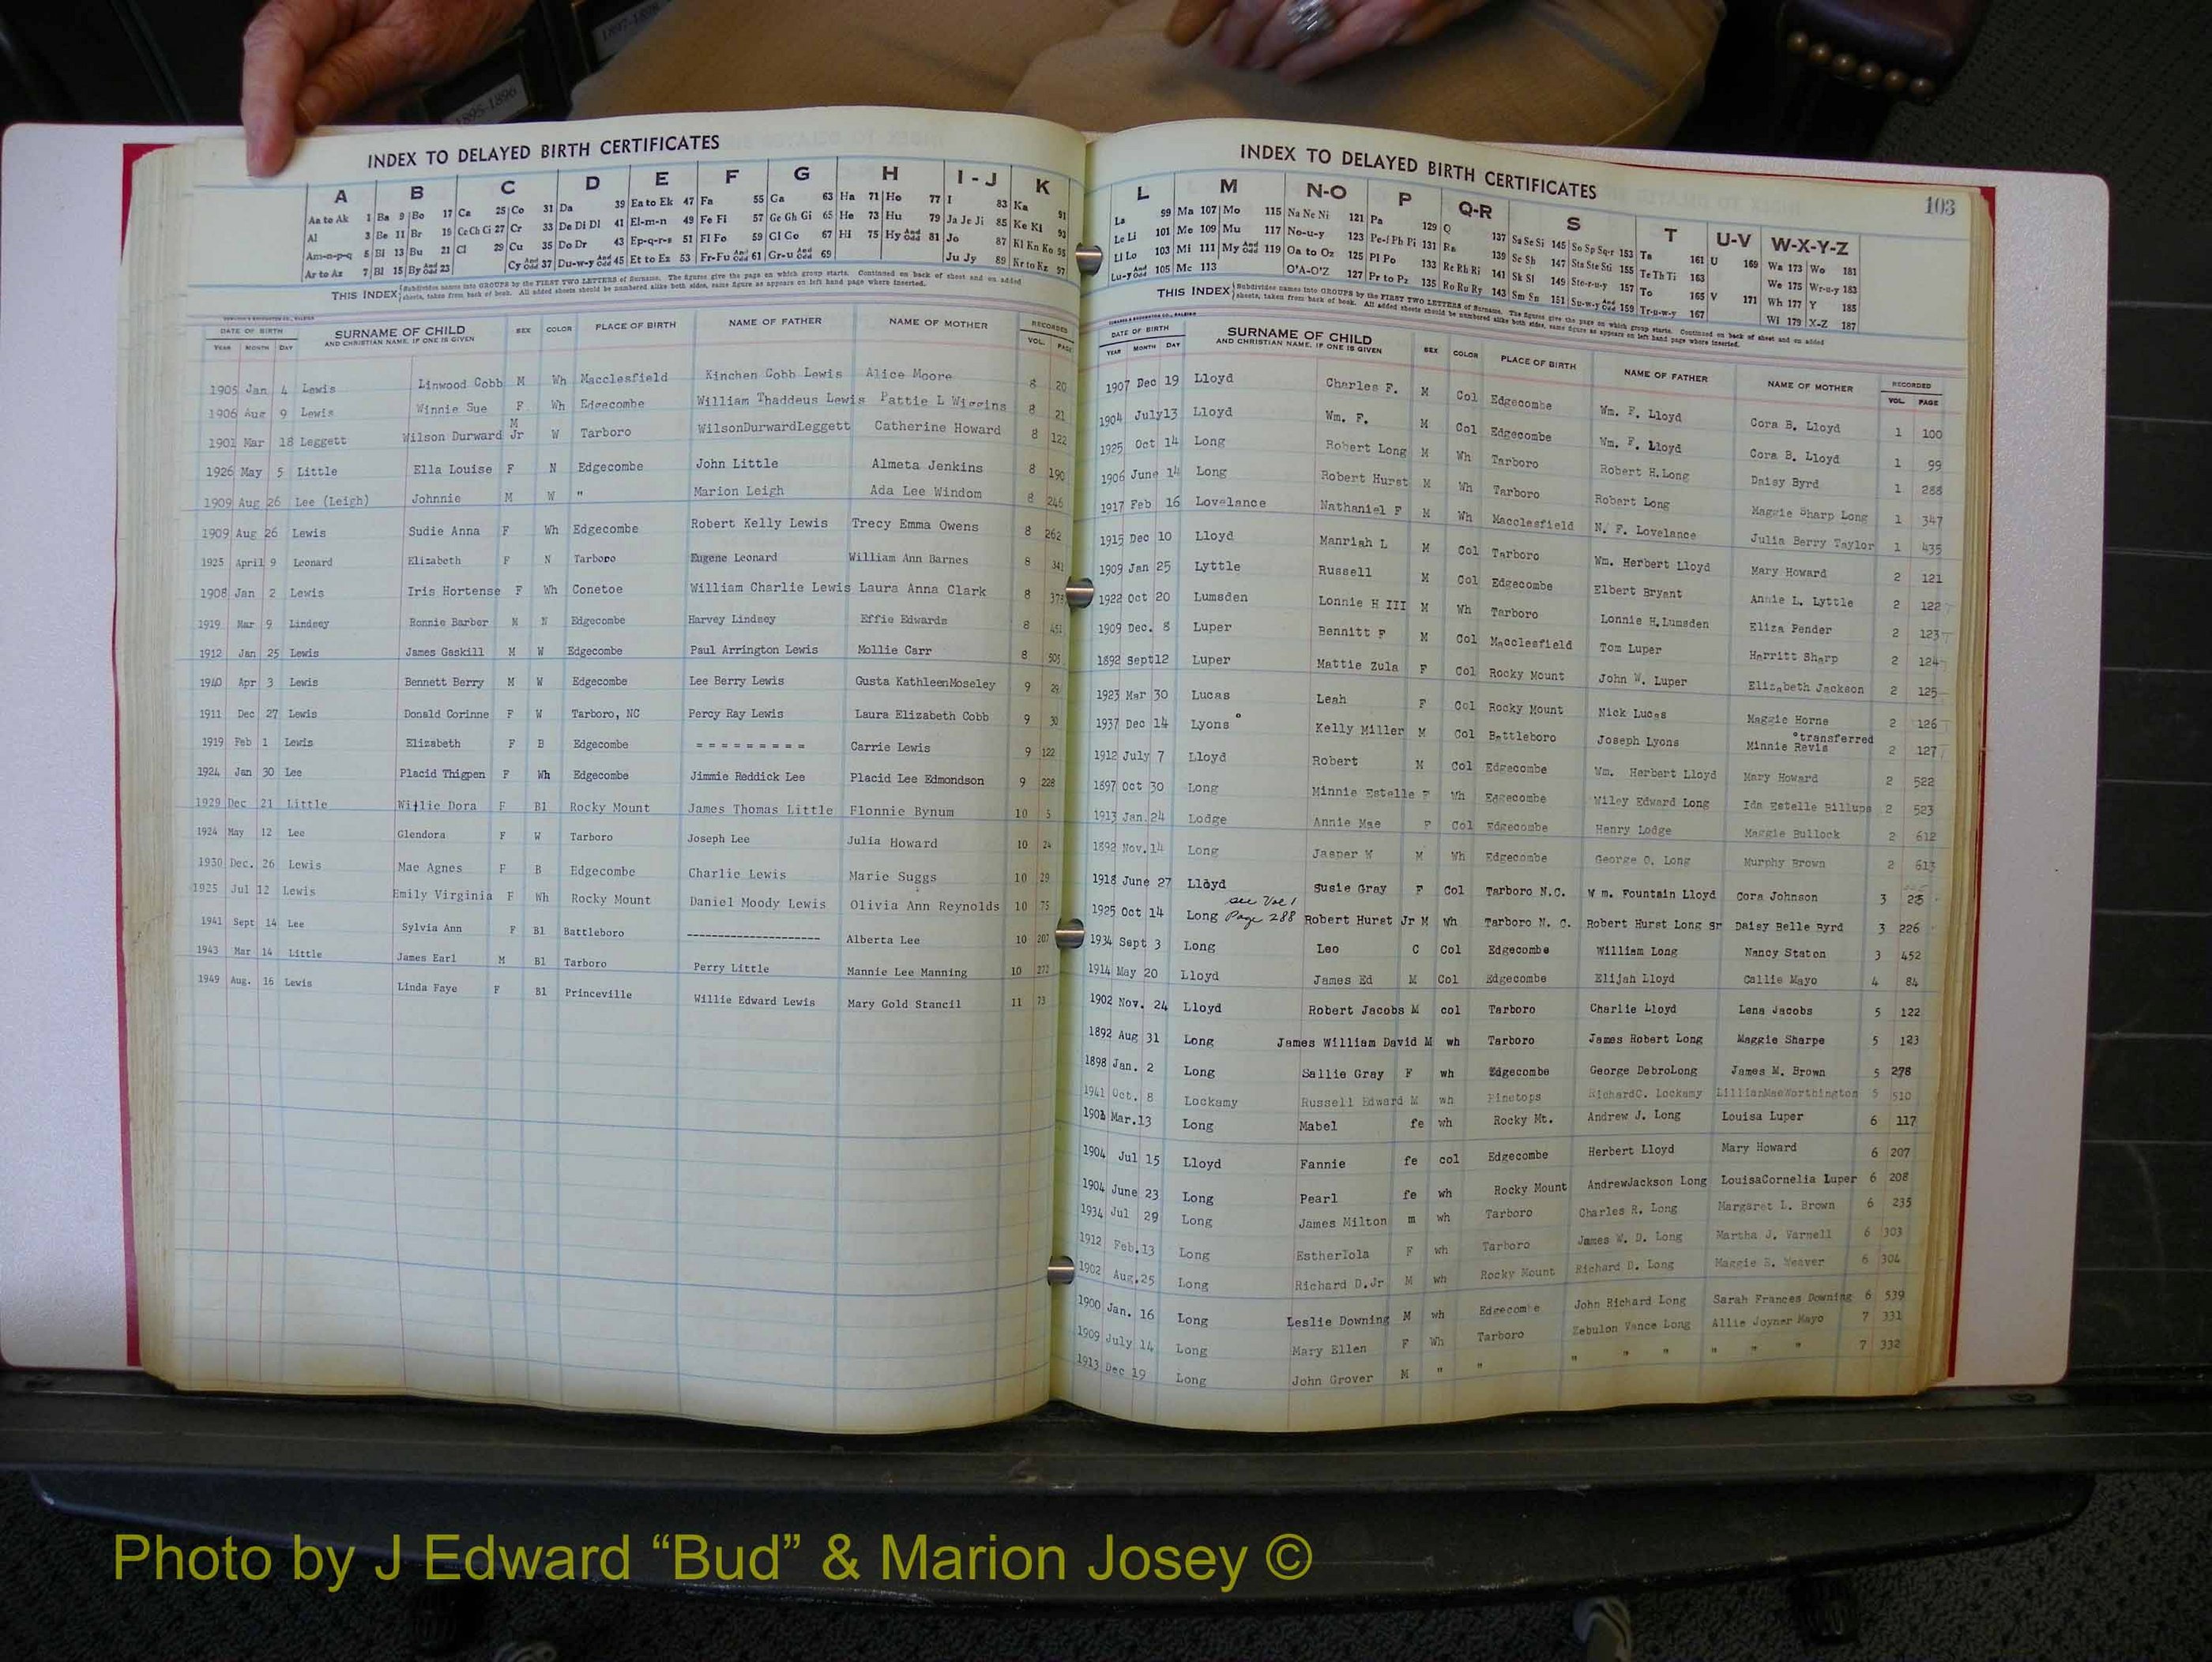 1897-1898
1895-1896
INDEX TO DELAYED BIRTH CERTIFICATES
A B C D E F G H I - J K
Aa to Ak 1 Ba 9 Bo 17 Ca 25 Co 31 Da 39 Ea to Ek 47 Fa 55 Ga 63 Ha 71 Ho 77 I 83 Ka 91
Al 3 Be 11 Br 19 Ce Ch Ci 27 Cr 33 De Di Dl 41 El-m-n 49 Fe Fi 57 Ge Gh Gi 65 He 73 Hu 79 Ja Je Ji 85 Ke Ki 93
Am-n-p-q 5 Bi 13 Bu 21 Cl 29 Cu 35 Do Dr 43 Ep-q-r-s 51 Fl Fo 59 Gl Go 67 Hi 75 Hy And Odd 81 Jo 87 Kl Kn Ko 95
Ar to Az 7 Bl 15 By And Odd 23 Cy And Odd 37 Du-w-y And Odd 45 Et to Ez 53 Fr-Fu And Odd 61 Gr-u And Odd 69 Ju Jy 89 Kr to Kz 97
THIS INDEX Subdivides names into GROUPS by the FIRST TWO LETTERS of Surname. The figures give the page on which group starts. Continued on back of sheet and on added
sheets, taken from back of book. All added sheets should be numbered alike both sides, same figure as appears on left hand page where inserted.
DATE OF BIRTH SURNAME OF CHILD SEX COLOR PLACE OF BIRTH NAME OF FATHER NAME OF MOTHER RECORDED
YEAR MONTH DAY AND CHRISTIAN NAME, IF ONE IS GIVEN VOL. PAGE
1905 Jan 4 Lewis Linwood Cobb M Wh Macclesfield Kinchen Cobb Lewis Alice Moore 8 20
1906 Aug 9 Lewis Winnie Sue F Wh Edgecombe William Thaddeus Lewis Pattie L Wiggins 8 21
1901 Mar 18 Leggett Wilson Durward Jr M W Tarboro WilsonDurwardLeggett Catherine Howard 8 122
1926 May 5 Little Ella Louise F N Edgecombe John Little Almeta Jenkins 8 190
1909 Aug 26 Lee (Leigh) Johnnie M W " Marion Leigh Ada Lee Windom 8 246
1909 Aug 26 Lewis Sudie Anna F Wh Edgecombe Robert Kelly Lewis Trecy Emma Owens 8 262
1925 April 9 Leonard Elizabeth F N Tarboro Eugene Leonard William Ann Barnes 8 341
1908 Jan 2 Lewis Iris Hortense F Wh Conetoe William Charlie Lewis Laura Anna Clark 8 378
1919 Mar 9 Lindsey Ronnie Barber M N Edgecombe Harvey Lindsey Effie Edwards 8 451
1912 Jan 25 Lewis James Gaskill M W Edgecombe Paul Arrington Lewis Mollie Carr 8 505
1940 Apr 3 Lewis Bennett Berry M W Edgecombe Lee Berry Lewis Gusta KathleenMoseley 9 29
1911 Dec 27 Lewis Donald Corinne F W Tarboro, NC Percy Ray Lewis Laura Elizabeth Cobb 9 30
1919 Feb 1 Lewis Elizabeth F B Edgecombe = = = = = = = = = Carrie Lewis 9 122
1924 Jan 30 Lee Placid Thigpen F Wh Edgecombe Jimmie Reddick Lee Placid Lee Edmondson 9 228
1929 Dec 21 Little Willie Dora F Bl Rocky Mount James Thomas Little Flonnie Bynum 10 5
1924 May 12 Lee Glendora F W Tarboro Joseph Lee Julia Howard 10 24
1930 Dec. 26 Lewis Mae Agnes F B Edgecombe Charlie Lewis Marie Suggs 10 29
1925 Jul 12 Lewis Emily Virginia F Wh Rocky Mount Daniel Moody Lewis Olivia Ann Reynolds 10 75
1941 Sept 14 Lee Sylvia Ann F Bl Battleboro --------------------- Alberta Lee 10 207
1943 Mar 14 Little James Earl M Bl Tarboro Perry Little Mannie Lee Manning 10 272
1949 Aug. 16 Lewis Linda Faye F Bl Princeville Willie Edward Lewis Mary Gold Stancil 11 73
INDEX TO DELAYED BIRTH CERTIFICATES
103
L M N-O P Q-R S T U-V W-X-Y-Z
La 99 Ma 107 Mo 115 Na Ne Ni 121 Pa 129 Q 137 Sa Se Si 145 So Sp Sq-r 153 Ta 161 U 169 Wa 173 Wo 181
Le Li 101 Me 109 Mu 117 No-u-y 123 Pe-f Ph Pi 131 Ra 139 Sc Sh 147 Sta Ste Sti 155 Te Th Ti 163 We 175 Wr-u-y 183
Ll Lo 103 Mi 111 My And Odd 119 Oa to Oz 125 Pl Po 133 Re Rh Ri 141 Sk Sl 149 Sto-r-u-y 157 To 165 V 171 Wh 177 Y 185
Lu-y And Odd 105 Mc 113 O'A-O'Z 127 Pr to Pz 135 Ro Ru Ry 143 Sm Sn 151 Su-w-y And Odd 159 Tr-u-w-y 167 Wi 179 X-Z 187
THIS INDEX Subdivides names into GROUPS by the FIRST TWO LETTERS of Surname. The figures give the page on which group starts. Continued on back of sheet and on added
sheets, taken from back of book. All added sheets should be numbered alike both sides, same figure as appears on left hand page where inserted.
DATE OF BIRTH SURNAME OF CHILD SEX COLOR PLACE OF BIRTH NAME OF FATHER NAME OF MOTHER RECORDED
YEAR MONTH DAY AND CHRISTIAN NAME, IF ONE IS GIVEN VOL. PAGE
1907 Dec 19 Lloyd Charles F. M Col Edgecombe Wm. F. Lloyd Cora B. Lloyd 1 100
1904 July13 Lloyd Wm. F. M Col Edgecombe Wm. F. Lloyd Cora B. Lloyd 1 99
1925 Oct 14 Long Robert Long M Wh Tarboro Robert H.Long Daisy Byrd 1 288
1906 June 14 Long Robert Hurst M Wh Tarboro Robert Long Maggie Sharp Long 1 347
1917 Feb 16 Lovelance Nathaniel F M Wh Macclesfield N. F. Lovelance Julia Berry Taylor 1 435
1915 Dec 10 Lloyd Manriah L M Col Tarboro Wm. Herbert Lloyd Mary Howard 2 121
1909 Jan 25 Lyttle Russell M Col Edgecombe Elbert Bryant Annie L. Lyttle 2 122
1922 Oct 20 Lumsden Lonnie H III M Wh Tarboro Lonnie H.Lumsden Eliza Pender 2 123
1909 Dec. 8 Luper Bennitt F M Col Macclesfield Tom Luper Harritt Sharp 2 124
1892 Sept12 Luper Mattie Zula F Col Rocky Mount John W. Luper Elizabeth Jackson 2 125
1923 Mar 30 Lucas Leah F Col Rocky Mount Nick Lucas Maggie Horne 2 126
1937 Dec 14 Lyons ° Kelly Miller M Col Battleboro Joseph Lyons Minnie Revis °transferred 2 127
1912 July 7 Lloyd Robert M Col Edgecombe Wm. Herbert Lloyd Mary Howard 2 522
1897 Oct 30 Long Minnie Estelle F Wh Edgecombe Wiley Edward Long Ida Estelle Billups 2 523
1913 Jan.24 Lodge Annie Mae F Col Edgecombe Henry Lodge Maggie Bullock 2 612
1892 Nov.14 Long Jasper W M Wh Edgecombe George O. Long Murphy Brown 2 613
1918 June 27 Lloyd Susie Gray F Col Tarboro N.C. W m. Fountain Lloyd Cora Johnson 3
1925 Oct 14 Long see Vol 1 Page 288 Robert Hurst Jr M Wh Tarboro N. C. Robert Hurst Long Sr Daisy Belle Byrd 3 226
1934 Sept 3 Long Leo C Col Edgecombe William Long Nancy Staton 3 452
1914 May 20 Lloyd James Ed M Col Edgecombe Elijah Lloyd Callie Mayo 4 84
1902 Nov. 24 Lloyd Robert Jacobs M col Tarboro Charlie Lloyd Lena Jacobs 5 122
1892 Aug 31 Long James William David M wh Tarboro James Robert Long Maggie Sharpe 5 123
1898 Jan. 2 Long Sallie Gray F wh Edgecombe George DebroLong James M. Brown 5 278
1941 Oct. 8 Lockamy Russell Edward M wh Pinetops RichardC. Lockamy LillianMaeWorthington 5 510
Mar.13 Long Mabel fe wh Rocky Mt. Andrew J. Long Louisa Luper 6 117
1904 Jul 15 Lloyd Fannie fe col Edgecombe Herbert Lloyd Mary Howard 6 207
1904 June 23 Long Pearl fe wh Rocky Mount AndrewJackson Long LouisaCornelia Luper 6 208
1934 Jul 29 Long James Milton m wh Tarboro Charles R. Long Margaret L. Brown 6 235
1912 Feb.13 Long EstherIola F wh Tarboro James W. D. Long Martha J. Varnell 6 303
1902 Aug.25 Long Richard D.Jr M wh Rocky Mount Richard D. Long Maggie R. Weaver 6 304
1900 Jan. 16 Long Leslie Downing M wh Edgecombe John Richard Long Sarah Frances Downing 6 539
1909 July 14 Long Mary Ellen F Wh Tarboro Zebulon Vance Long Allie Joyner Mayo 7 331
1913 Dec 19 Long John Grover M " " " " " " " " 7 332
Photo by J Edward “Bud” & Marion Josey ©